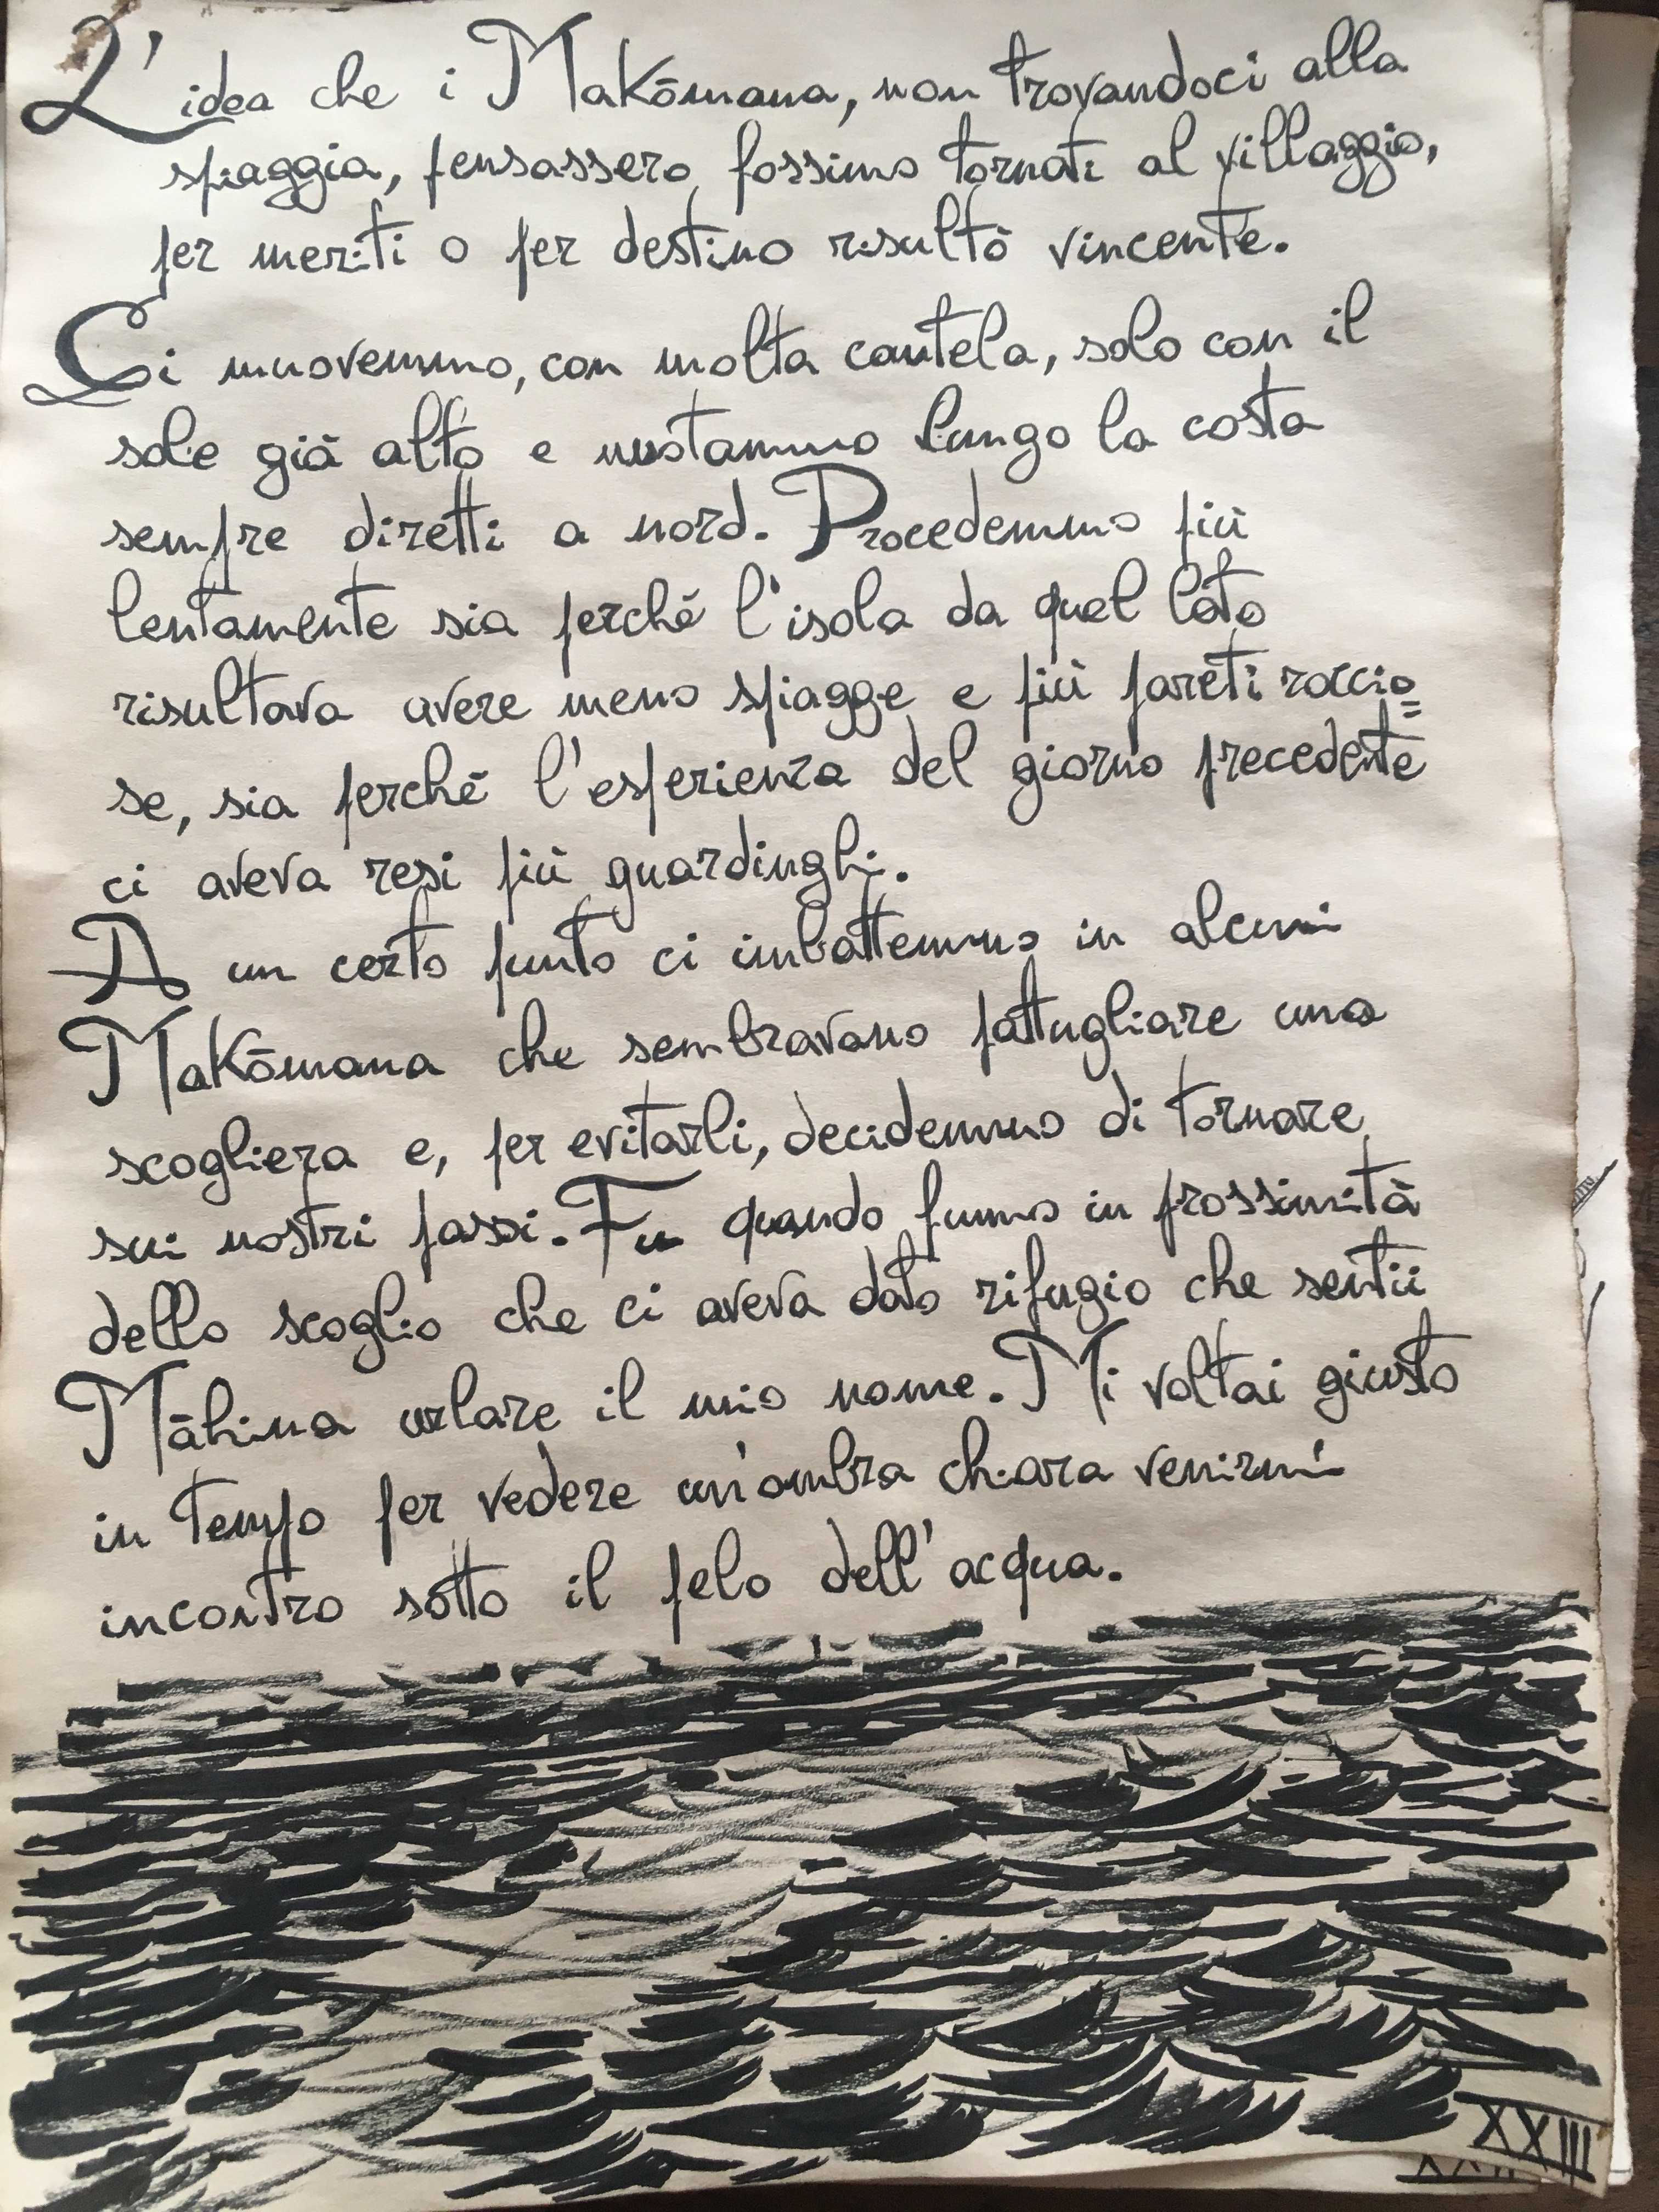 L'idea che i Makōmana, non trovandoci alla
spiaggia, pensassero fossimo tornati al villaggio,
per meriti o per destino risultò vincente.
Ci muovemmo, con molta cautela, solo con il
sole già alto e nuotammo lungo la costa
sempre diretti a nord. Procedemmo più
lentamente sia perché l'isola da quel lato
risultava avere meno spiagge e più pareti roccio=
se, sia perché l'esperienza del giorno precedente
ci aveva resi più guardinghi.
A un certo punto ci imbattemmo in alcuni
Makōmana che sembravano pattugliare una
scogliera e, per evitarli, decidemmo di tornare
sui nostri passi. Fu quando fummo in prossimità
dello scoglio che ci aveva dato rifugio che sentii
Māhina urlare il mio nome. Mi voltai giusto
in tempo per vedere un'ombra chiara venirmi
incontro sotto il pelo dell'acqua.
XXIII